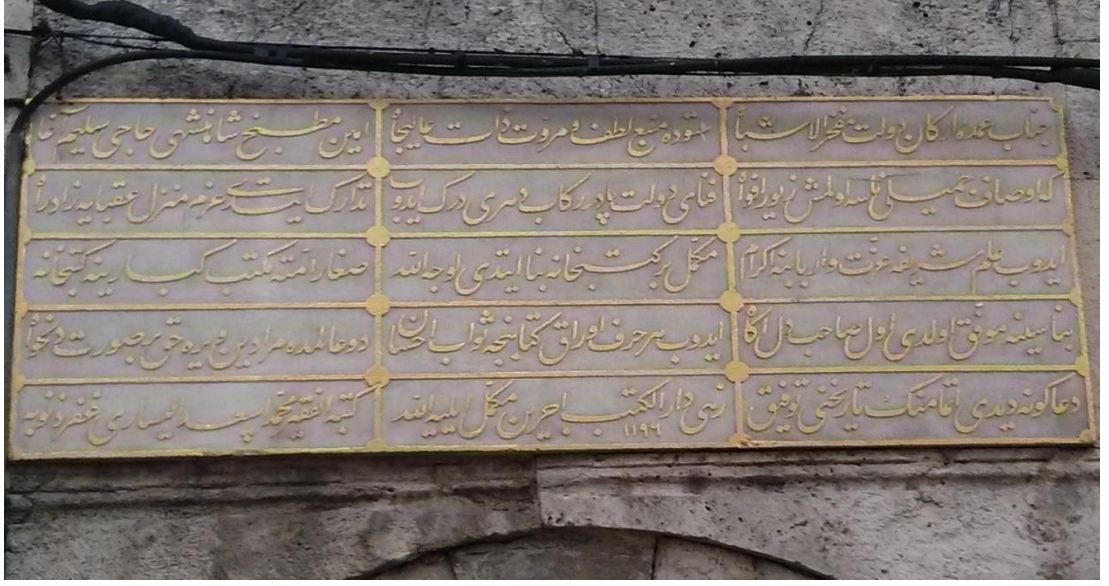 جناب عمدهٔ ارکان دولت مفخر الاشباه
ستوده منبع لطف و مروت ذات عالیجاه
امین مطبخ شاهنشهی حاجی سلیم آغا
که اوصاف جمیلی
فنای دولت پا در رکاب دهری درک ایدوب
تدارک ایتدی عزم منزل عقبایه زاد راه
ایدوب علم شریفه عزت و اربابنه اکرام
مکمل بر کتبخانه بنا ایتدی لوجه الله
صغار امته مکتب کبارینه کتبخانه
بناسینه موفق اولدی اول صاحب دل آگاه
ایدوب هر حرف اوراق کتابنجه ثواب احسان
دو عالمده مرادین ویره حق بر صورت دلخواه
دعاگونه دیدی اتمامنک تاریخنی توفیق
زهی دار الکتب اجرین مکمل ایلیه الله
۱۱۹۶
کتبه الفقیر محمد اسعد الیساری غفر ذنوبه